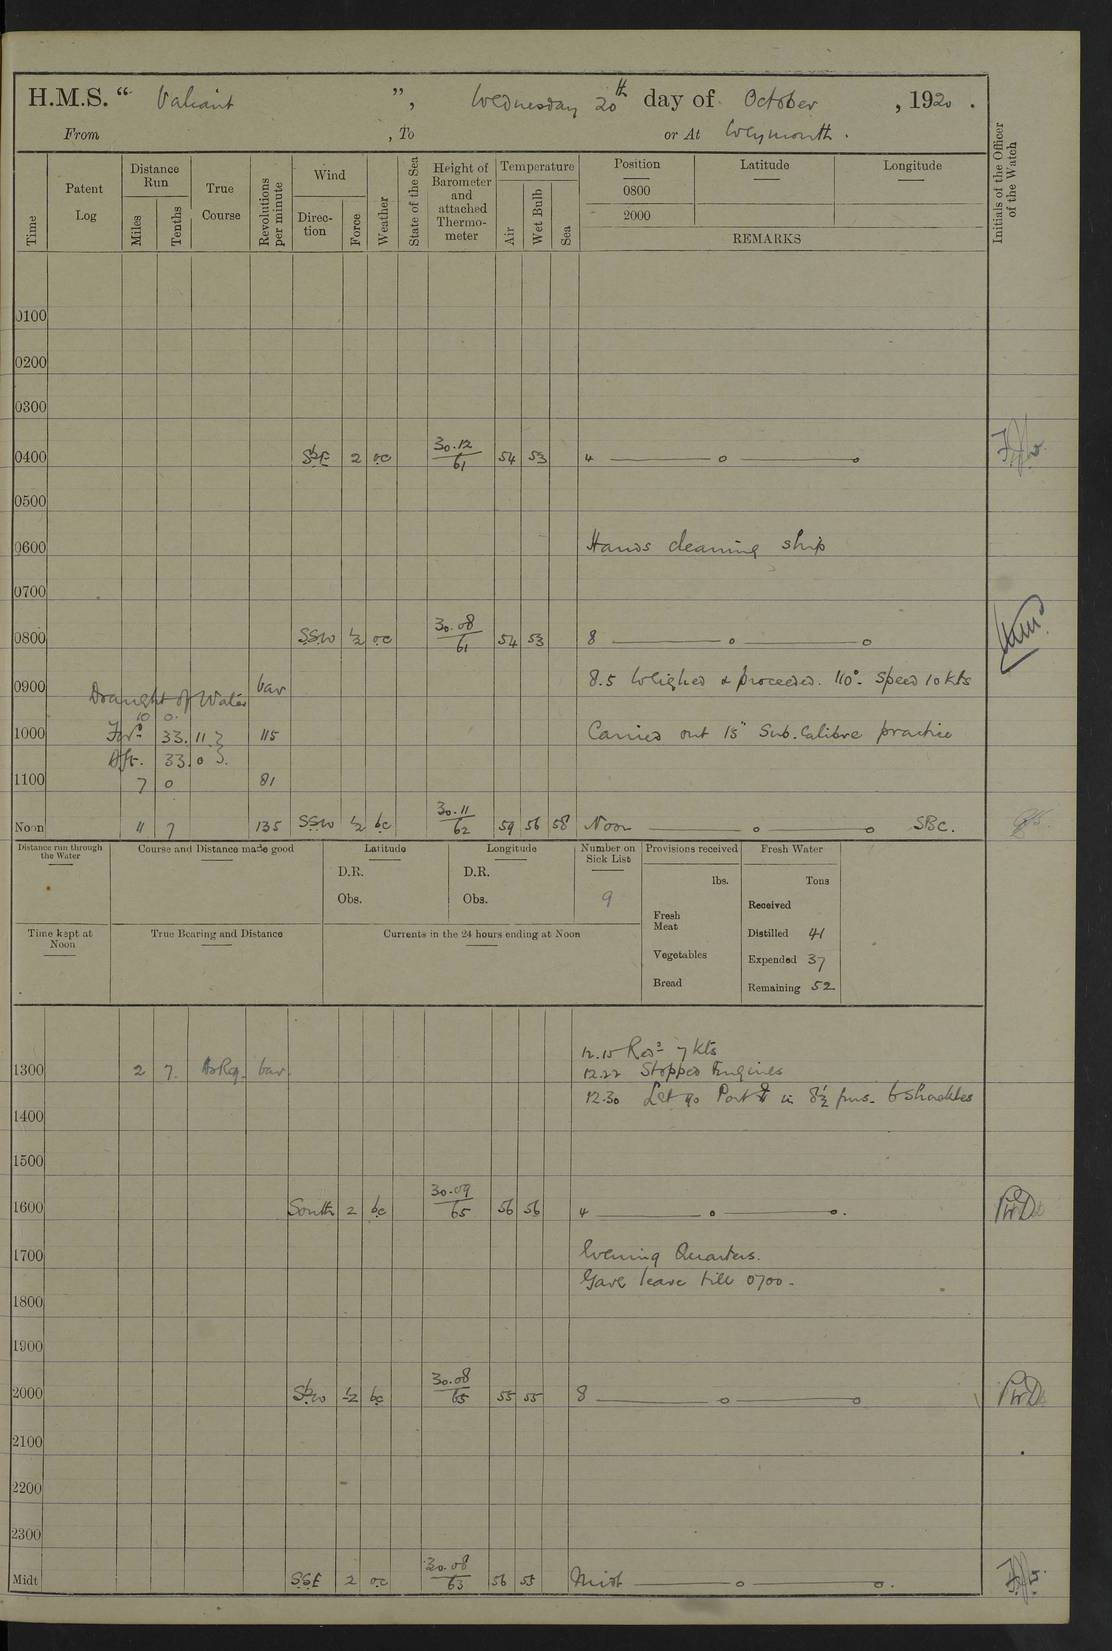 H.M.S. “ Valiant ”, Wednesday 20th day of October , 1920 .
From , To or At Weymouth .
Time
Patent Log
Distance Run
Miles
Tenths
True Course
Revolutions per minute
Wind
Direc-tion
Force
Weather
State of the Sea
Height of Barometer and attached Thermo-meter
Temperature
Air
Wet Bulb
Sea
Position
Latitude
Longitude
0800
2000
REMARKS
Initials of the Officer of the Watch
0100
0200
0300
0400 SbE 2 oc 30.12/61 54 53 4 —— o —— o
0500
0600 Hands cleaning ship
0700
0800 SSW 1/2 oc 30.08/61 54 53 8 —— o —— o
0900 Draught of Water var 8.5 Weighed & proceeded. 110°. Speed 10 kts
10 0
1000 Ford 33. 11 } 115 Carried out 15" Sub. Calibre practice
Aft. 33. 0 }
1100 7 0 81
Noon 11 7 135 SSW 1/2 bc 30.11/62 59 56 58 Noon —— o —— o SBC.
Distance run through the Water
Course and Distance made good
Latitude
D.R.
Obs.
Longitude
D.R.
Obs.
Number on Sick List
9
Provisions received
lbs.
Fresh Meat
Vegetables
Bread
Fresh Water
Tons
Received
Distilled 41
Expended 37
Remaining 52
Time kept at Noon
True Bearing and Distance
Currents in the 24 hours ending at Noon
12.15 Redd 7 kts
1300 2 7. As Req. var. 12.22 Stopped Engines
12.30 Let go Port ⚓ in 8½ fms. 6 shackles
1400
1500
1600 South 2 bc 30.09/65 56 56 4 —— o —— o.
1700 Evening Quarters.
Gave leave till 0700 -
1800
1900
2000 SbW 1-2 bc 30.08/65 55 55 8 —— o —— o
2100
2200
2300
Midt SSE 2 oc 30.08/63 56 55 Midt —— o —— o.